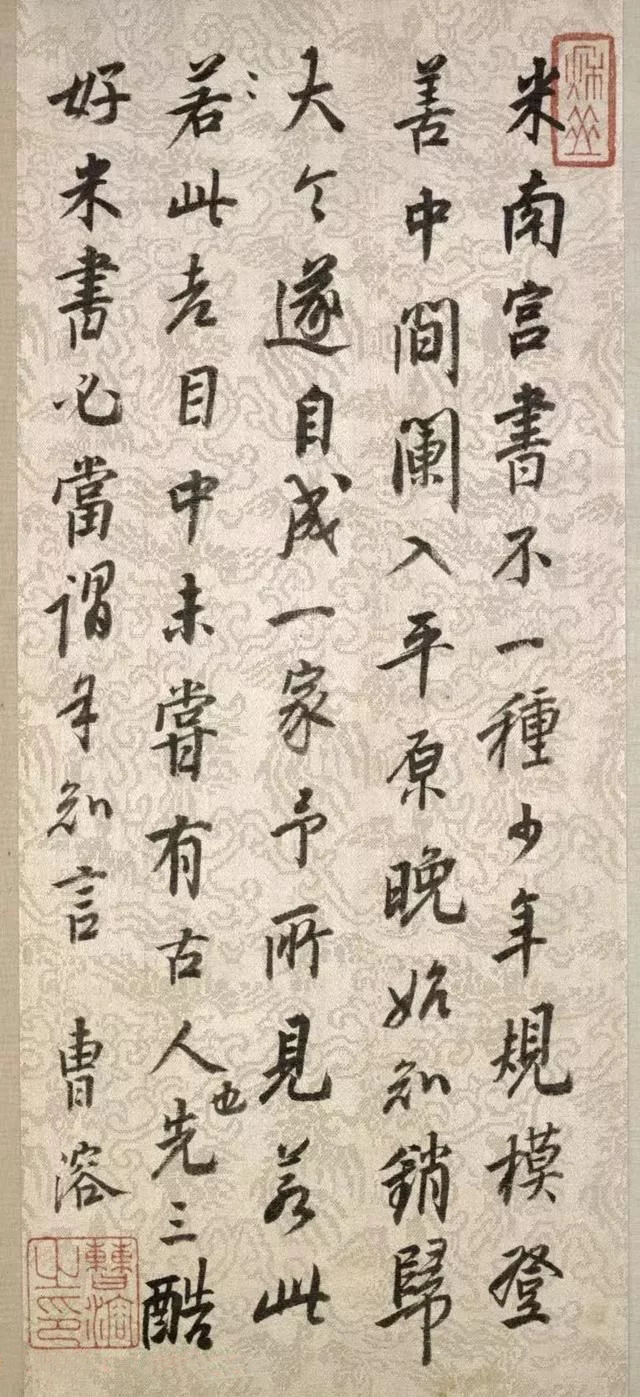 米南宫書不一種少年規模登
善中間闌入平原晚始知銷歸
大令遂自成一家予所見若此
若此老目中未嘗有古人也先生酷
好米書必當謂予知言 曹溶
曹溶之印